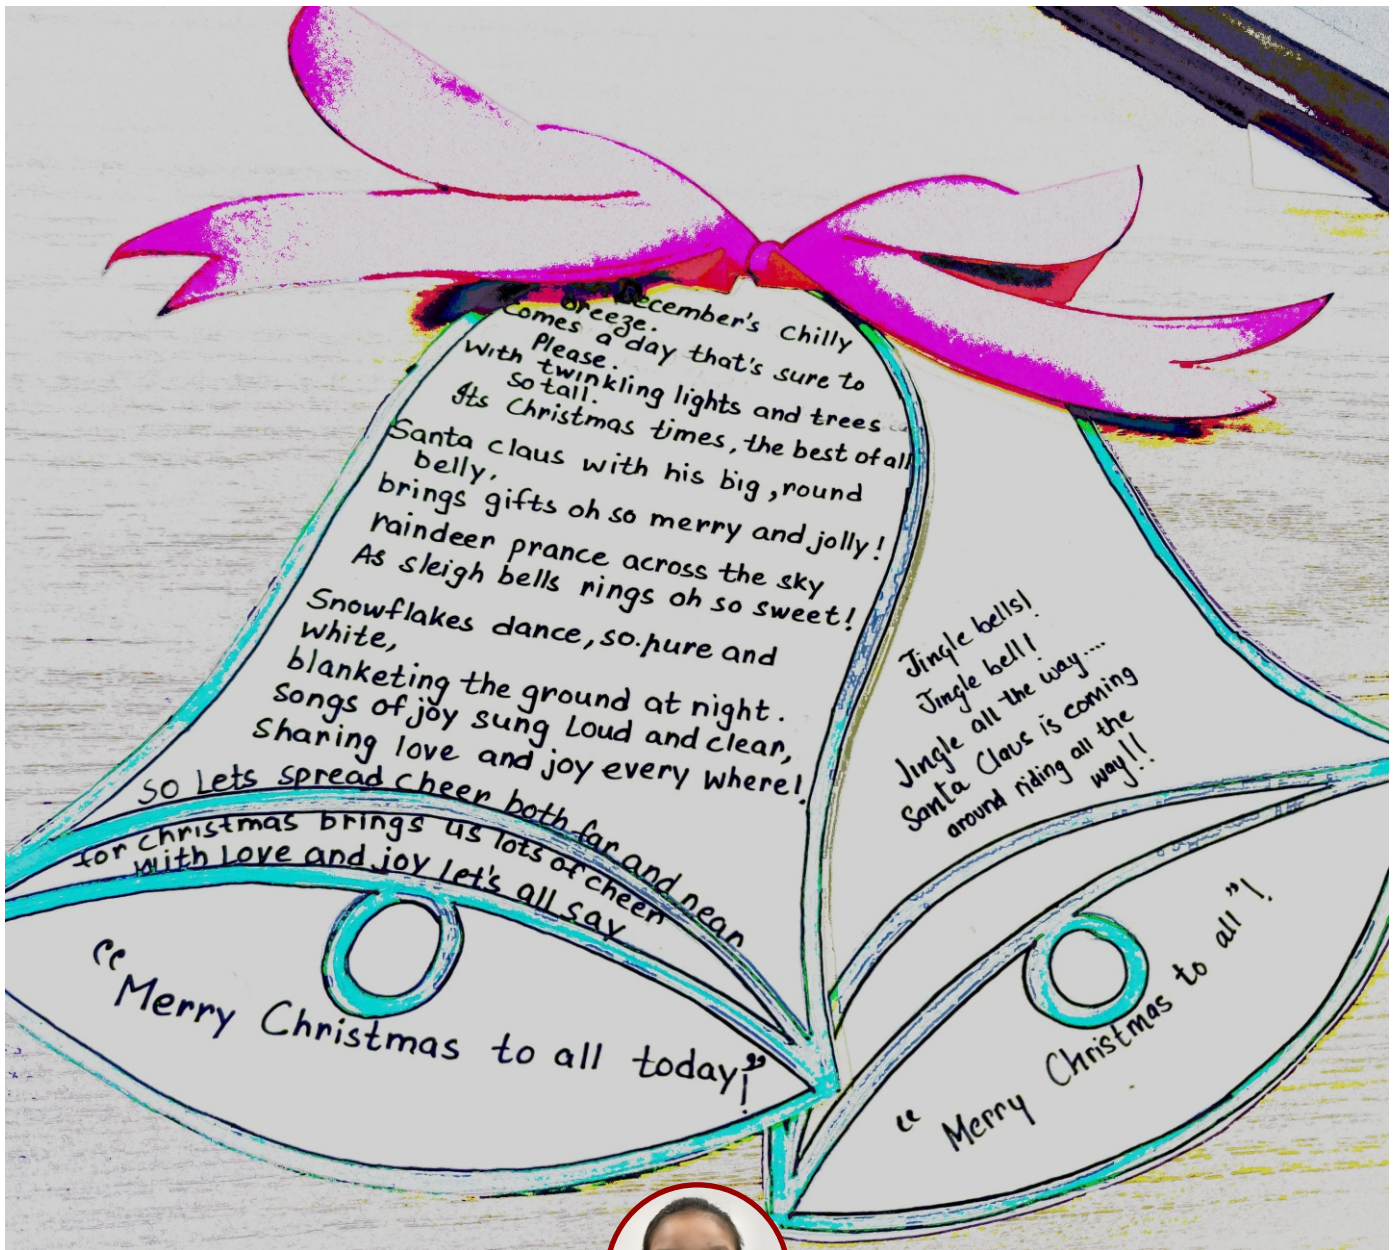 December's chilly
breeze.
Comes a day that's sure to
Please.
With twinkling lights and trees
so tall.
Its Christmas times, the best of all
Santa claus with his big, round
belly,
brings gifts oh so merry and jolly!
raindeer prance across the sky
As sleigh bells rings oh so sweet!
Snowflakes dance, so pure and
white,
blanketing the ground at night.
songs of joy sung Loud and clear,
Sharing love and joy every where!
So Lets spread cheer both far and near
for christmas brings us lots of cheer
with Love and joy let's all say
"Merry Christmas to all today"!
Jingle bells!
Jingle bell!
Jingle all the way....
Santa Claus is coming
around riding all the
way!!
"Merry Christmas to all"!